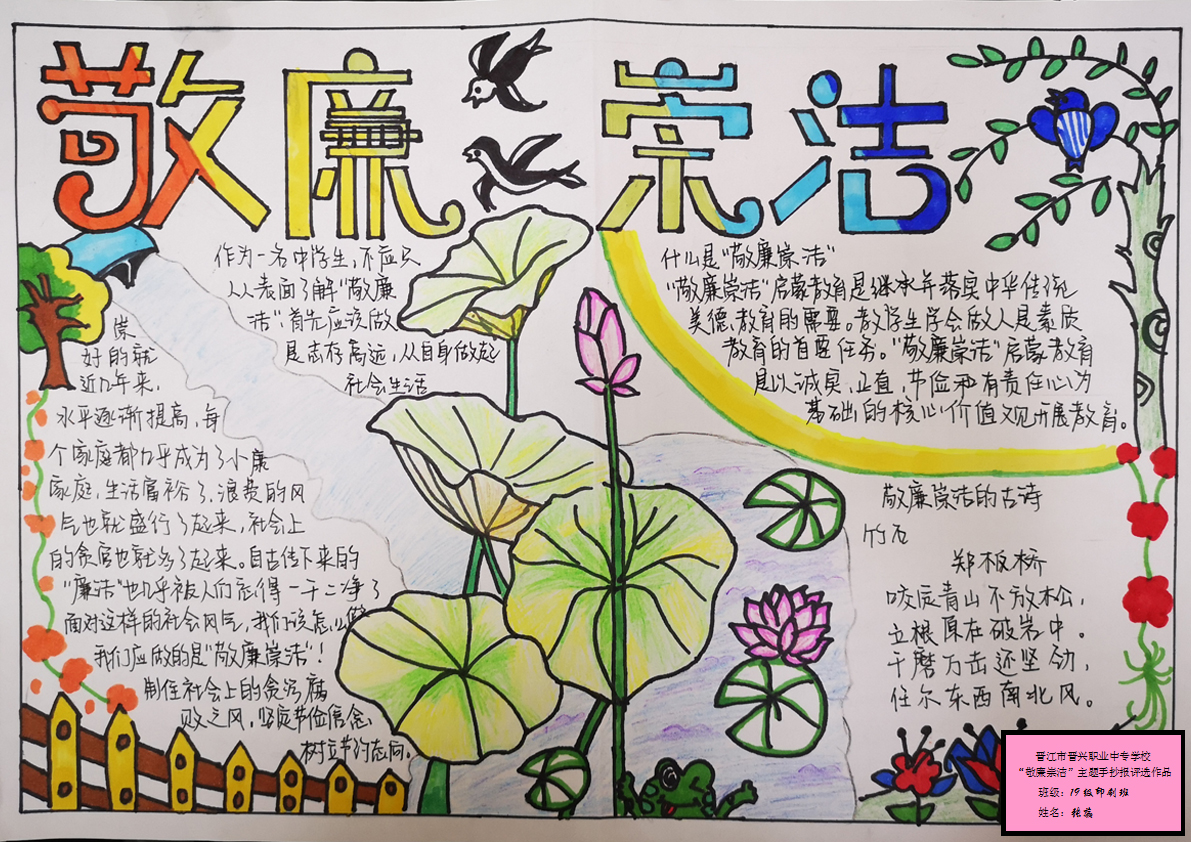 敬廉崇洁
作为一名中学生，不应只
从从表面了解“敬廉
洁”，首先应该做
是志存高远，从自身做起
社会生活
做
好的就
近几年来，
水平逐渐提高，每
个家庭都几乎成为了小康
家庭，生活富裕了，浪费的风
气也就盛行了起来，社会上
的贪官也就多了起来。自古传下来的
“廉洁”也几乎被人们忘得一干二净了
面对这样的社会风气，我们该怎么做
我们应做的是“敬廉崇洁”！
制住社会上的贪污腐
败之风，坚定节俭信念，
树立节约志向。
什么是“敬廉崇洁”
“敬廉崇洁”启蒙教育是继承并落实中华传统
美德，教育的需要。教学生学会做人是素质
教育的首要任务。“敬廉崇洁”启蒙教育
是以诚实，正直，节俭和有责任心为
基础的核心价值观开展教育。
敬廉崇洁的古诗
竹石
郑板桥
咬定青山不放松，
立根原在破岩中。
千磨万击还坚劲，
任尔东西南北风。
晋江市晋兴职业中专学校
“敬廉崇洁”主题手抄报评选作品
班级：19级印刷班
姓名：